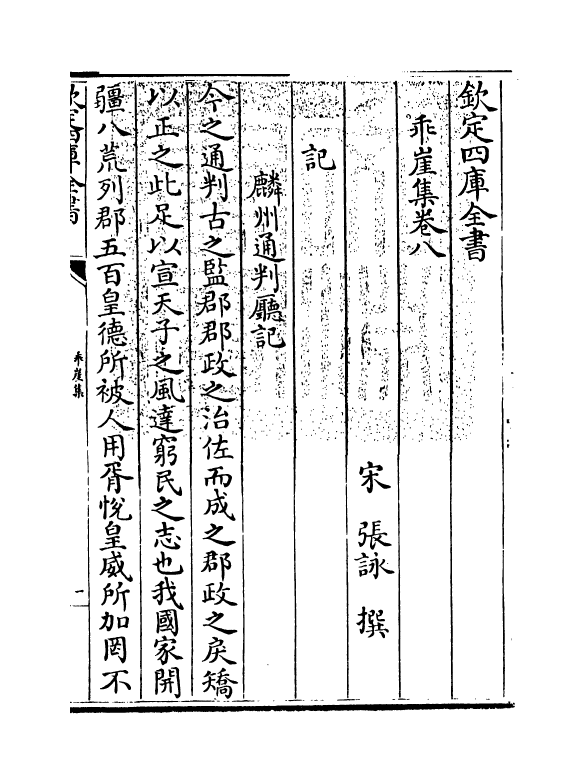 欽定四庫全書
乖崖集卷八
宋 張詠 撰
記
麟州通判廳記
今之通判古之監郡郡政之治佐而成之郡政之戾矯
以正之此足以宣天子之風達窮民之志也我國家開
疆八荒列郡五百皇德所被人用胥悅皇威所加罔不
欽定四庫全書
乖崖集
一